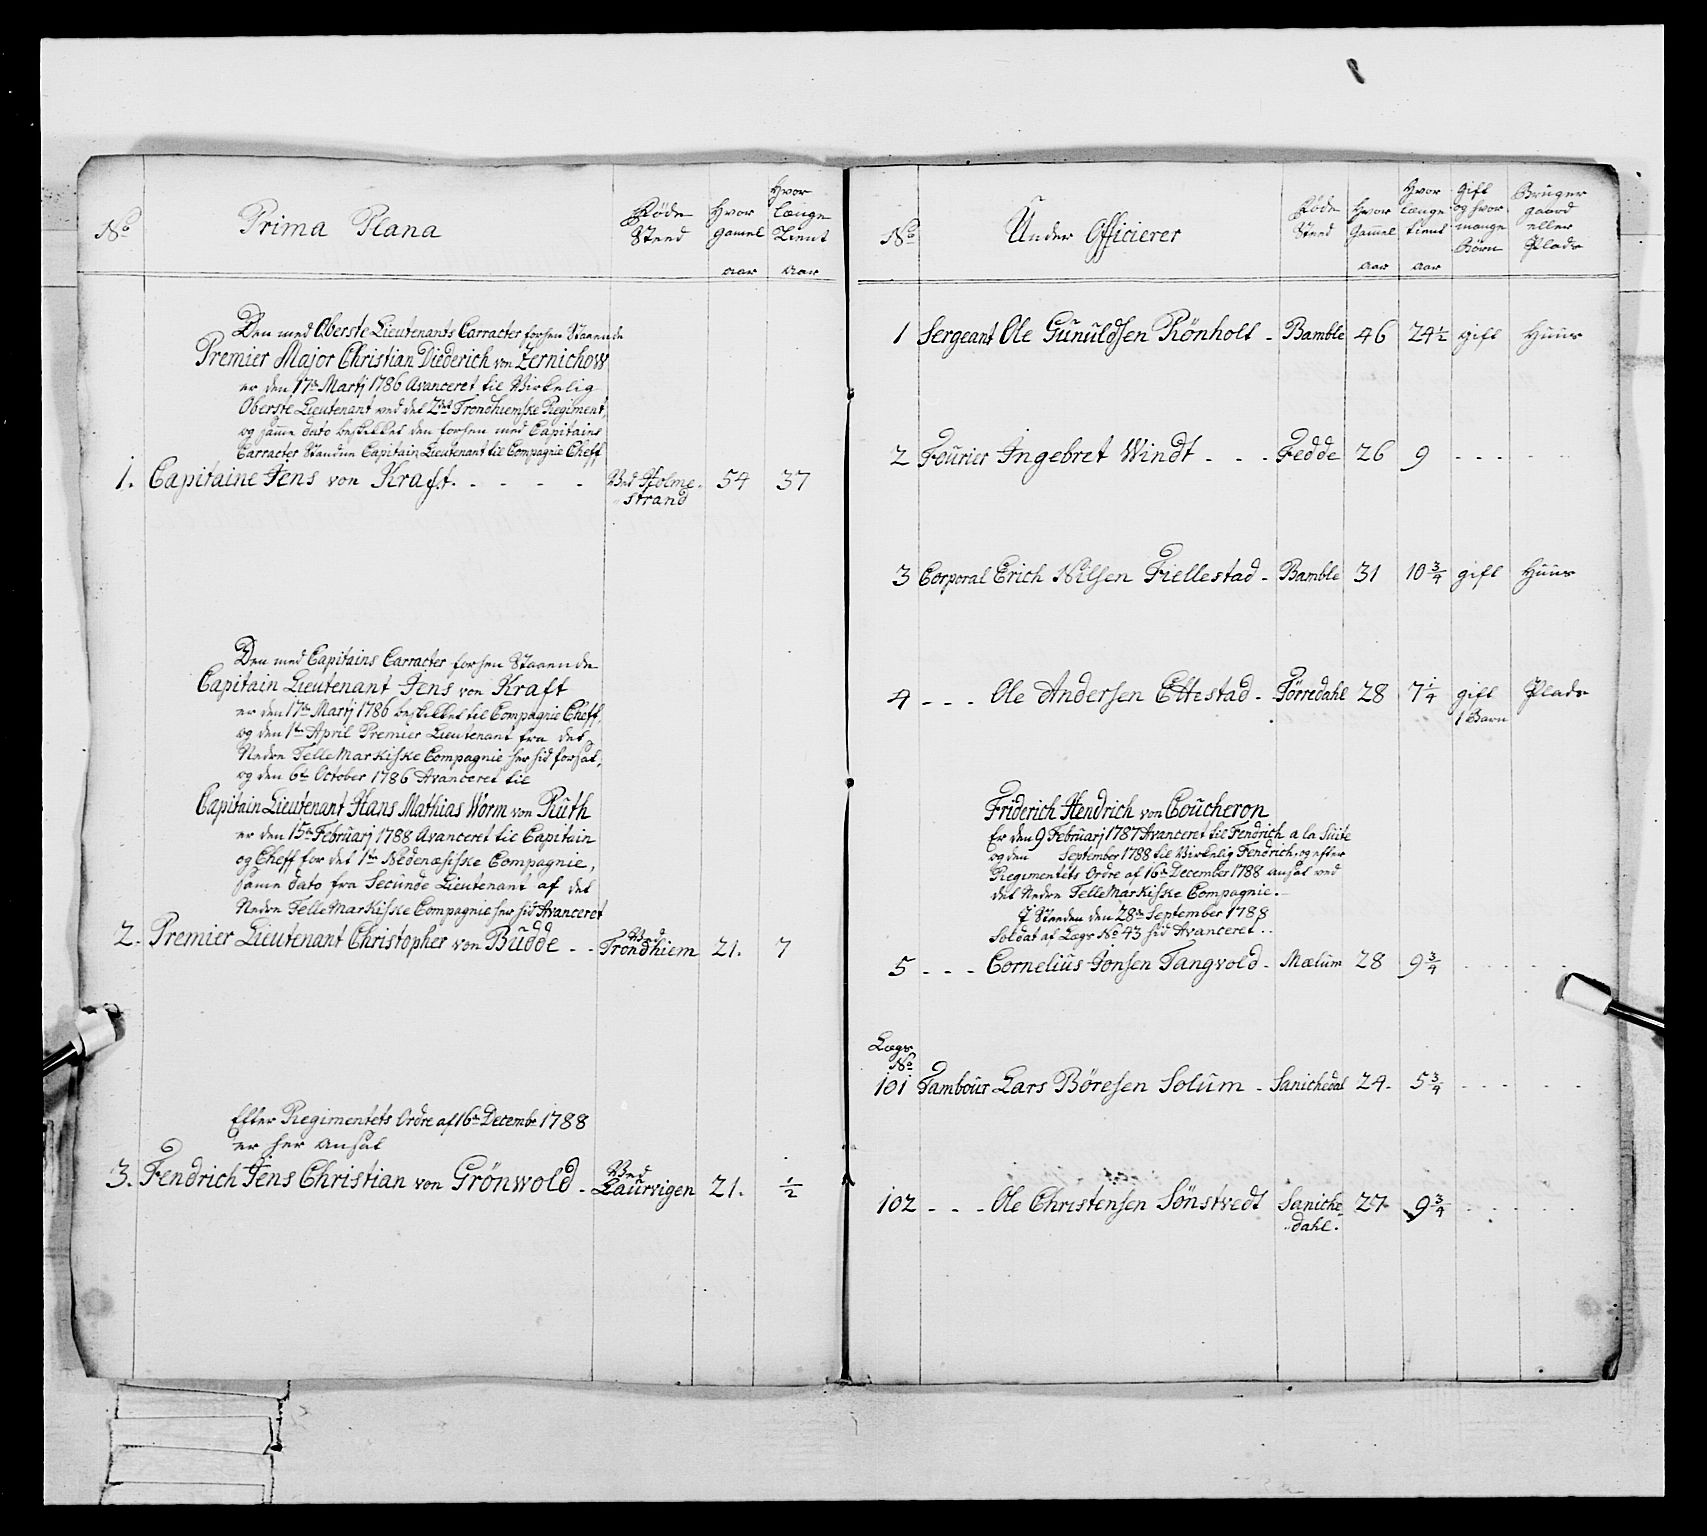 No
Prima Plana
Føde
Steed
Hvor
gamel
aar
Hvor
længe
Tient
aar
Den med Oberste Lieutenants Carracter forhen Staaende
Premier Major Christian Diederich von Zernichow
er den 17de Martj 1786 Avanceret til Virkelig
Oberste Lieutenant ved det 2det Trondhiemske Regiment,
og same dato beskikket den forhen med Capitains
Carracter Standne Capitain Lieutenant til Compagnie Cheff
1. Capitaine Jens von Kraft. - - - - Ved Holme- 54 37
strand
Den med Capitains Carracter forhen Staaende
Capitain Lieutenant Jens von Kraft
er den 17de Martj 1786 beskikket til Compagnie Cheff,
og den 1te April Premier Lieutenant fra det
Nedre Tellemarkiske Compagnie her hid forsat,
og den 6te October 1786 Avanceret til
Capitain Lieutenant Hans Mathias Worm von Ruth
er den 15de Februarj 1788 Avanceret til Capitain
og Cheff for det 1te Nedenæsiske Compagnie,
same dato fra Secunde Lieutenant af det
Nedre Tellemarkiske Compagnie her hid Avanceret
2. Premier Lieutenant Christopher von Budde - - Ved Trondhiem 21. 7
Efter Regimentets Ordre af 16de Decembr 1788
er her ansat
3. Fendrich Jens Christian von Grönwold - Ved Laurvigen 21. ½
No
Under Officierer
Føde
Steed
Hvor
Gammel
aar
Hvor
længe
tient
aar
Gift
og hvor
mange
Børn
Bruger
gaard
eller
Plads
1 Sergeant Ole Gunuldsen Rönholt - Bamble 46 24½ gift Huus
2 Fourier Ingebret Windt - - - Fedde 26 9 - - - -
3 Corporal Erich Nilsen Fiellestad - Bamble 31 10¾ gift Huus
4 - - - Ole Andersen Ettestad - Törredahl 28 7¼ gift Plads
1 Barn
Friderich Hendrich von Coucheron
Er den 9 Februarj 1787 Avanceret til Fendrich a la Suite
og den September 1788 til Virkelig Fendrich, og efter
Regimentets Ordre af 16de December 1788 ansat ved
det Nedre Tellemarkiske Compagnie.
I Steeden den 28de September 1788
Soldat af Lægs No 43 hid Avanceret . .
5 - - - Cornelius Jonsen Tangvold - Mælum 28 9¾ - - - -
Lægs
No
101 Tambour Lars Böresen Solum - Sanichedal 24 - 5¾ - - - - -
102 - - - Ole Christensen Sönstvedt Saniche- 27 - 9¾ - - - - -
dahl.